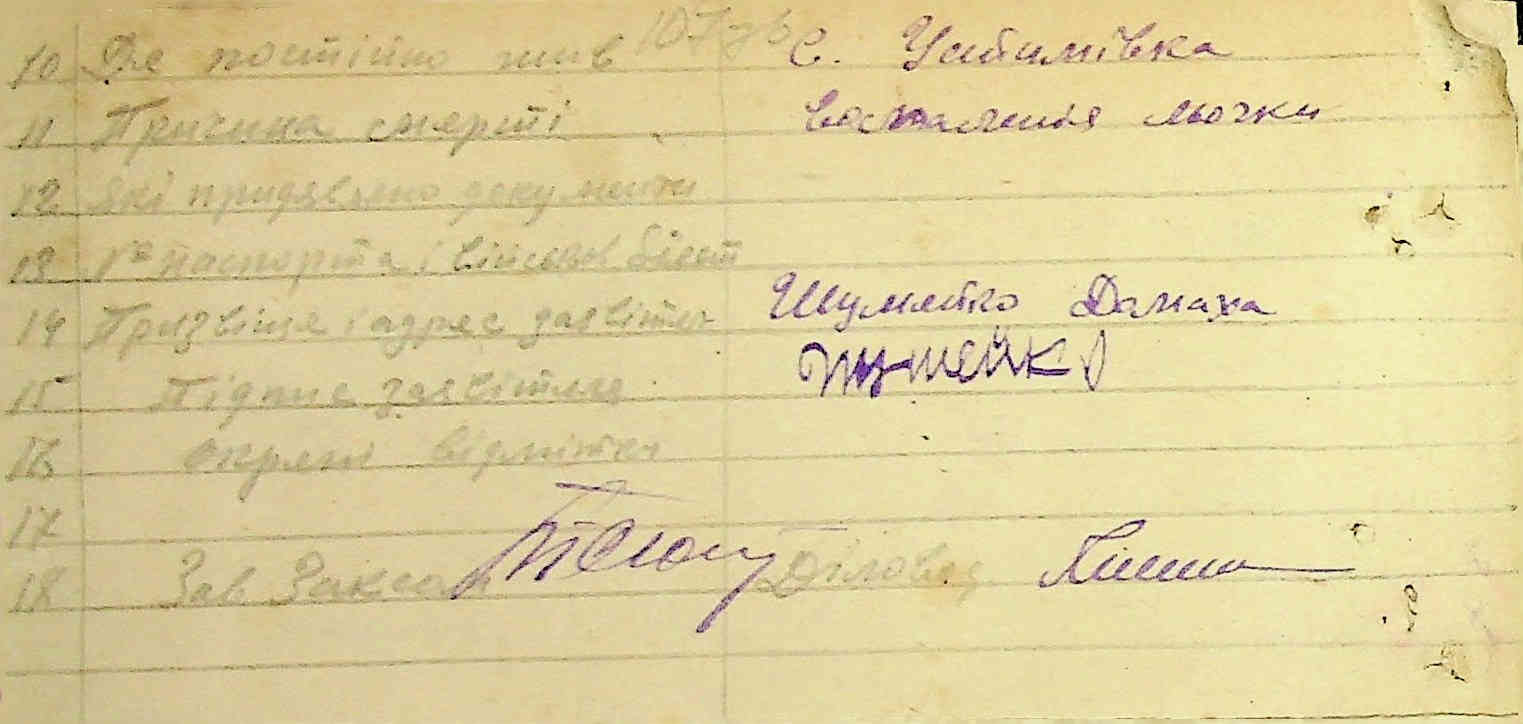 107зв
10 Де постійно жив С. Устимівка
11 Причина смерті воспаленія мочки
12 Які придявлено документи
13 № паспорта і військов білет
14 Призвіще і адрес заявітеля Шумейко Домаха
15 Підпис заявітеля Шумейко
16 окремі відмітки
17
18 Зав Загсом Діловод